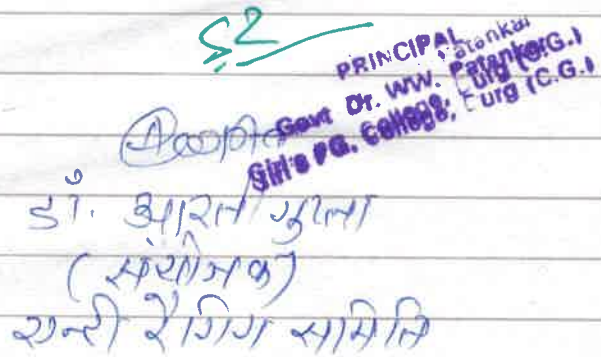 PRINCIPAL
Govt Dr. W.W. Patankar
Girl's PG. College, Durg (C.G.)
डॉ. आरती गुप्ता
(संयोजक)
एन्टी रैगिंग समिति